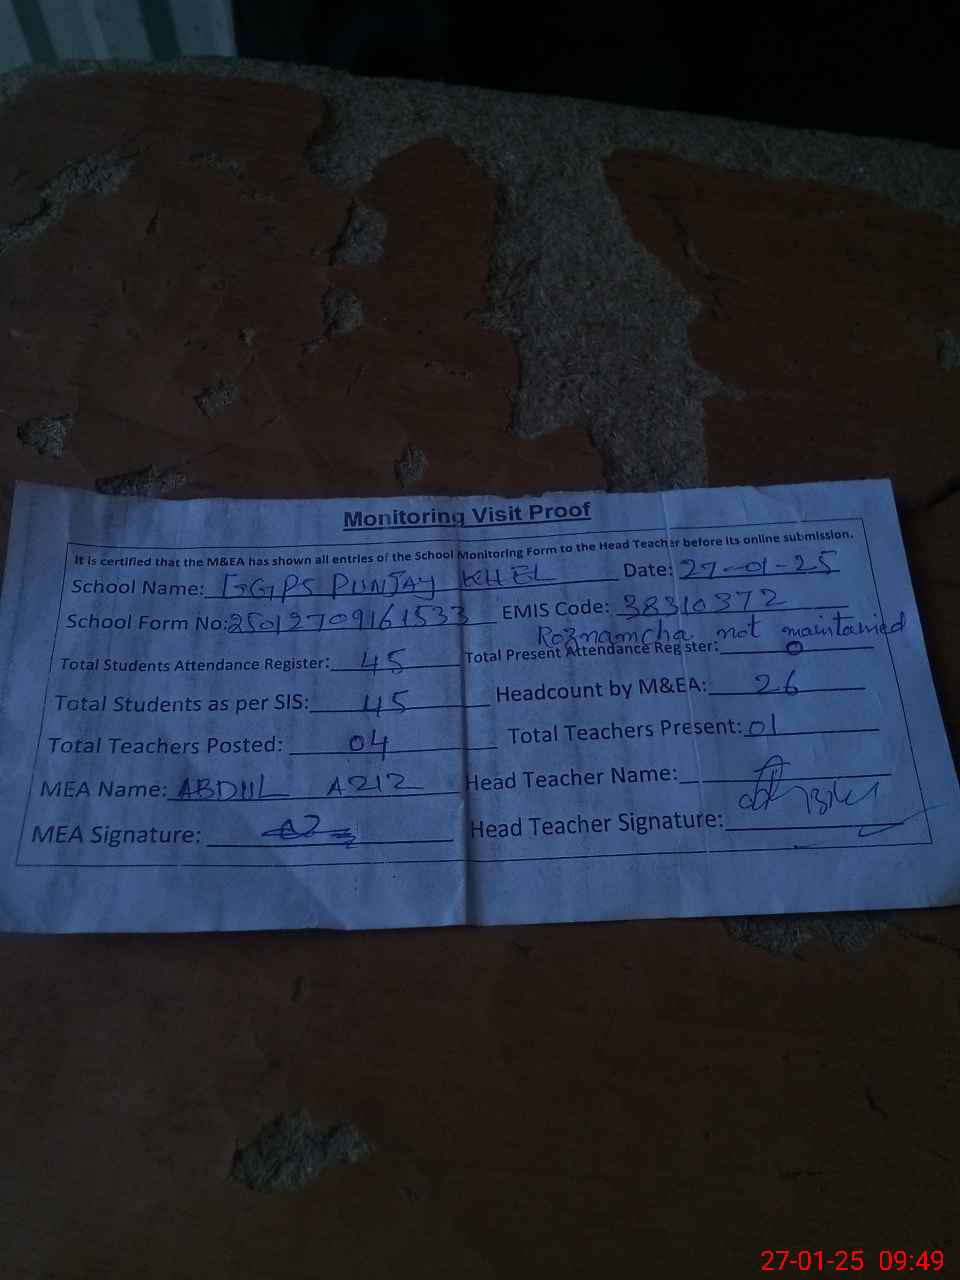 Monitoring Visit Proof
It is certified that the M&EA has shown all entries of the School Monitoring Form to the Head Teacher before its online submission.
School Name: GGPS PUNJAY KHEL Date: 27-01-25
School Form No: 25012709161533 EMIS Code: 38310372
Roznamcha not maintained
Total Students Attendance Register: 45 Total Present Attendance Register: 0
Total Students as per SIS: 45 Headcount by M&EA: 26
Total Teachers Posted: 04 Total Teachers Present: 01
MEA Name: ABDUL AZIZ Head Teacher Name:
MEA Signature: Head Teacher Signature:
27-01-25 09:49